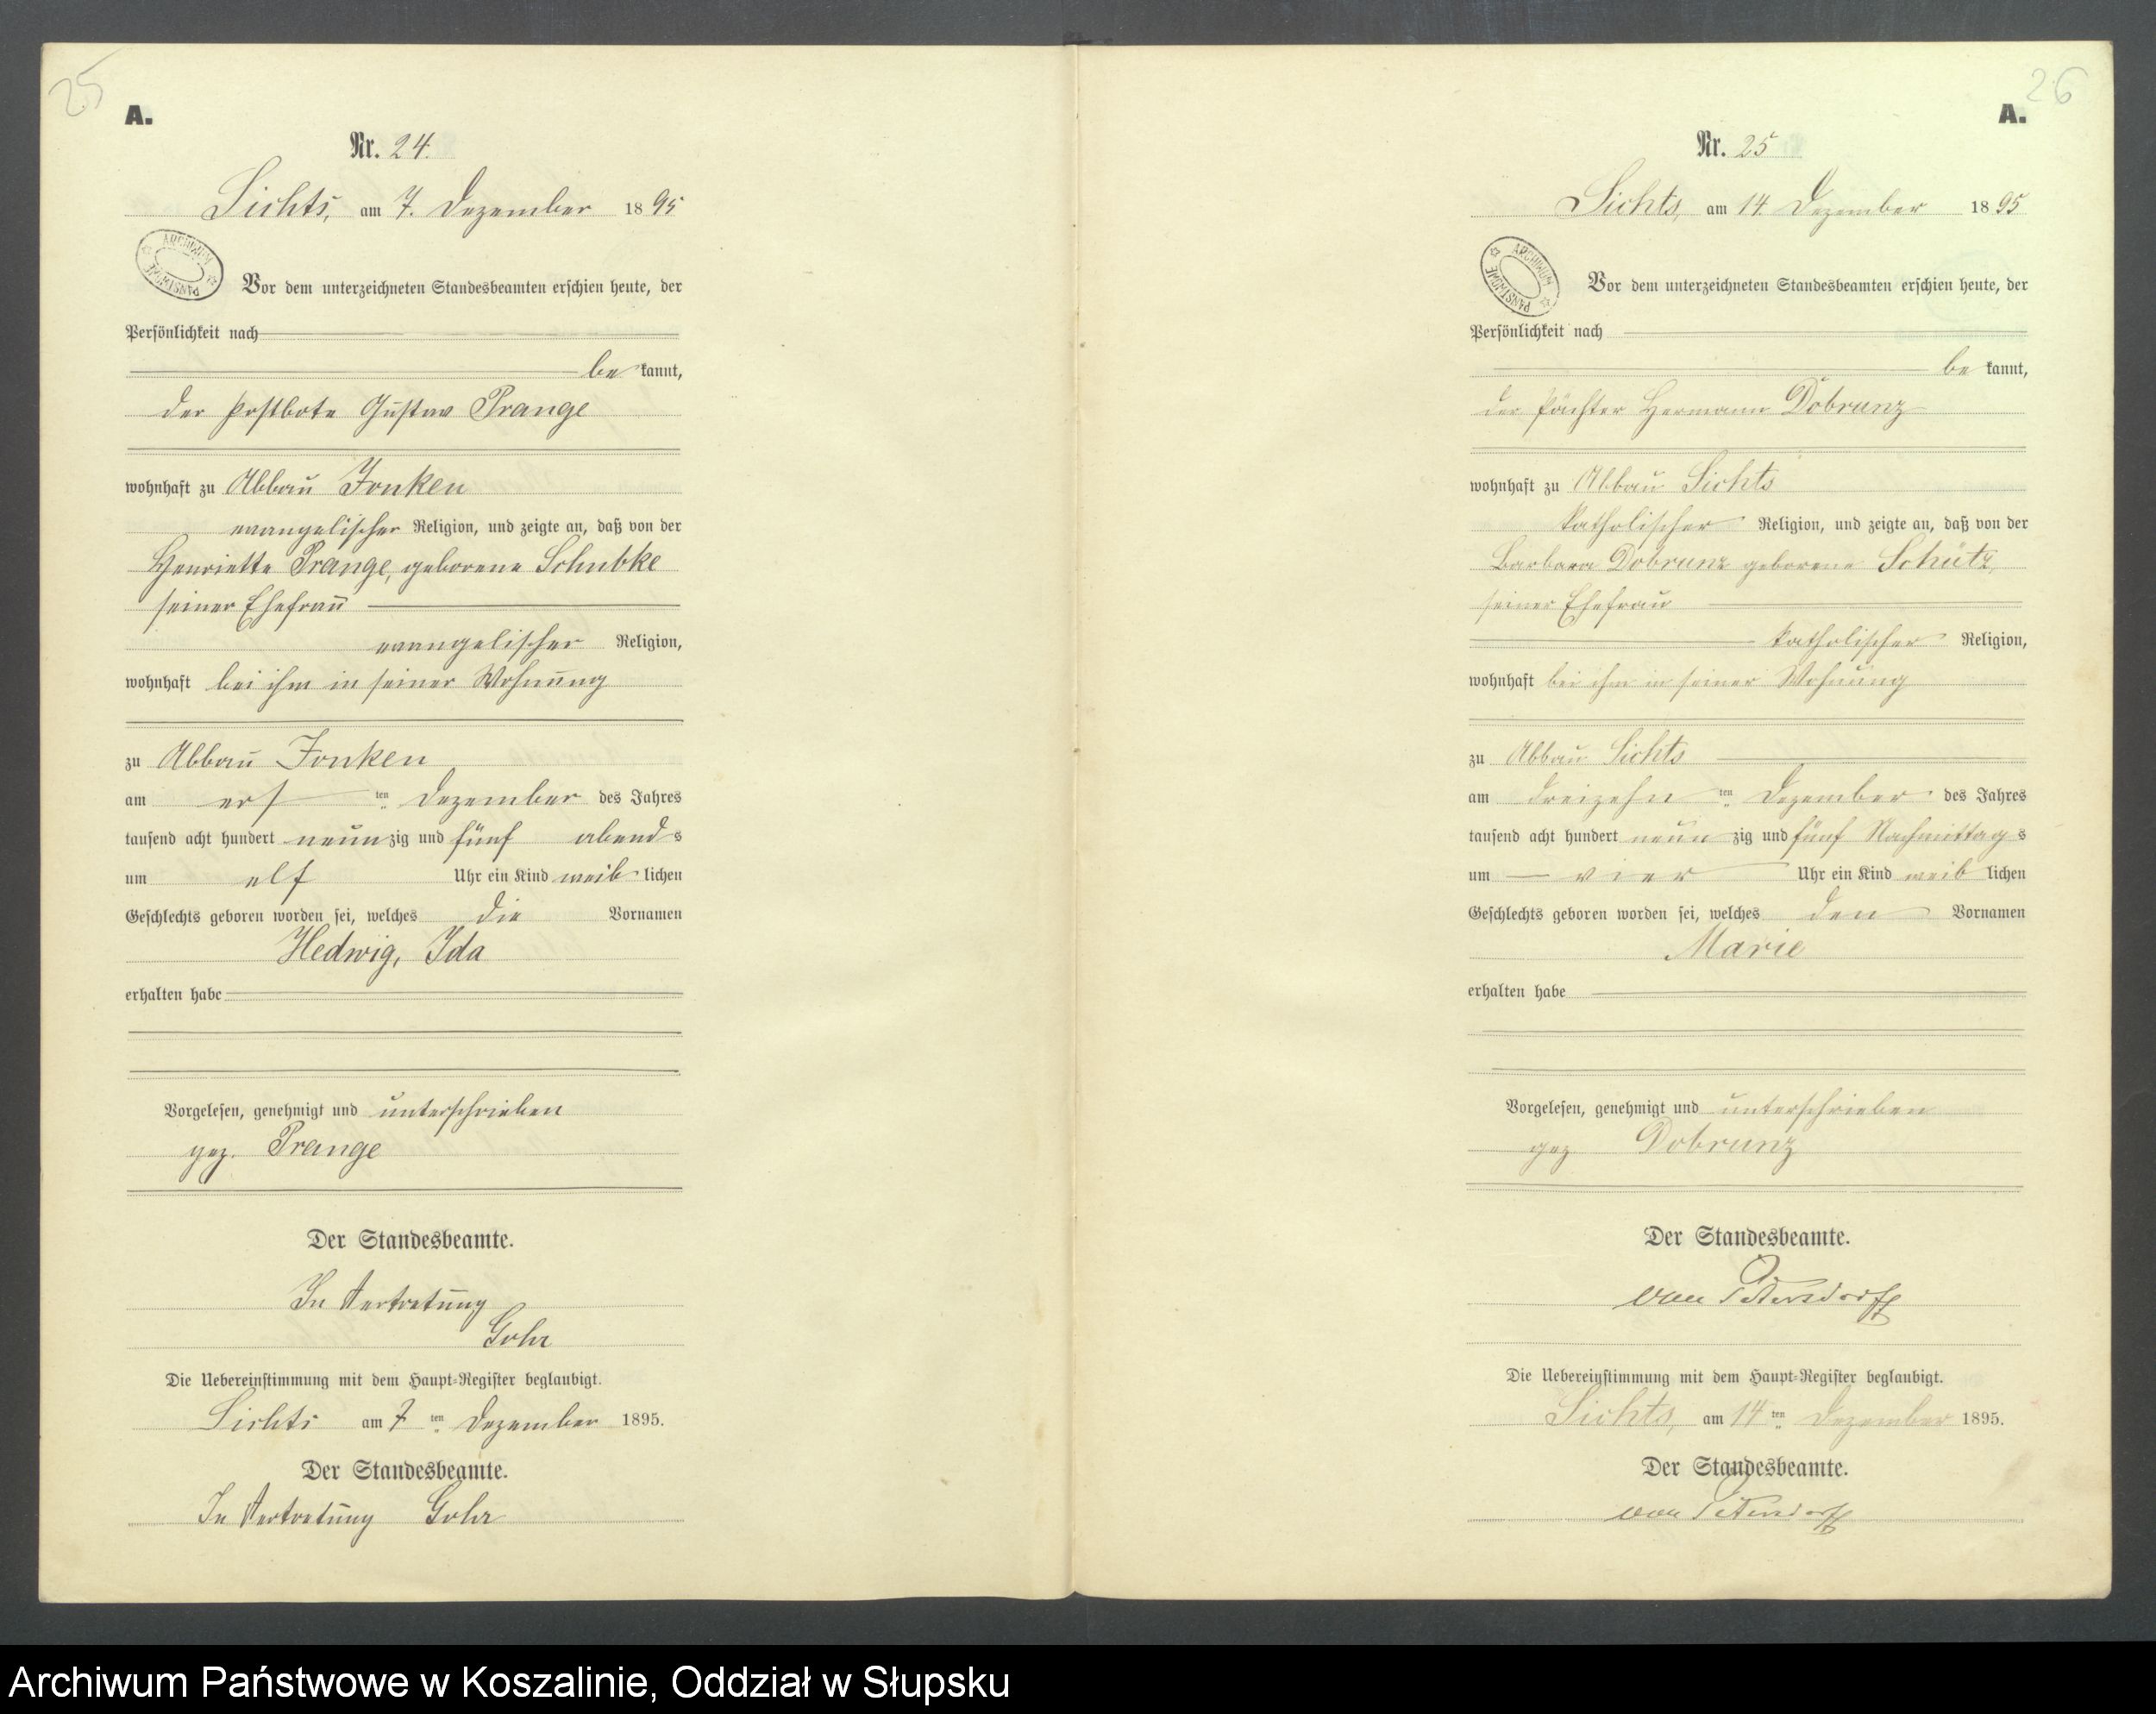 25
A.
Nr. 24.
Lichts, am 7. Dezember 1895
ARCHIWUM PAŃSTWOWE
Vor dem unterzeichneten Standesbeamten erschien heute, der
Persönlichkeit nach
be kannt,
der Postbote Gustav Prange
wohnhaft zu Abbau Jonken
evangelischer Religion, und zeigte an, daß von der
Henriette Prange, geborene Schubke
seiner Ehefrau
evangelischer Religion,
wohnhaft bei ihm in seiner Wohnung
zu Abbau Jonken
am erf ten Dezember des Jahres
tausend acht hundert neunzig und fünf abends
um elf Uhr ein Kind weiblichen
Geschlechts geboren worden sei, welches die Vornamen
Hedwig, Ida
erhalten habe
Vorgelesen, genehmigt und unterschrieben
gez. Prange
Der Standesbeamte.
In Vertretung
Gohr
Die Uebereinstimmung mit dem Haupt-Register beglaubigt.
Lichts am 7ten Dezember 1895.
Der Standesbeamte.
In Vertretung Gohr
26
A.
Nr. 25
Lichts, am 14 Dezember 1895
ARCHIWUM PAŃSTWOWE
Vor dem unterzeichneten Standesbeamten erschien heute, der
Persönlichkeit nach
be kannt,
der Pächter Hermann Dobrunz
wohnhaft zu Abbau Lichts
katholischer Religion, und zeigte an, daß von der
Barbara Dobrunz geborene Schütz,
seiner Ehefrau
katholischer Religion,
wohnhaft bei ihm in seiner Wohnung
zu Abbau Lichts
am dreizehn ten Dezember des Jahres
tausend acht hundert neun zig und fünf Nachmittags
um vier Uhr ein Kind weiblichen
Geschlechts geboren worden sei, welches den Vornamen
Marie
erhalten habe
Vorgelesen, genehmigt und unterschrieben
gez Dobrunz
Der Standesbeamte.
von Petersdorff
Die Uebereinstimmung mit dem Haupt-Register beglaubigt.
Lichts, am 14ten Dezember 1895.
Der Standesbeamte.
von Petersdorff
Archiwum Państwowe w Koszalinie, Oddział w Słupsku